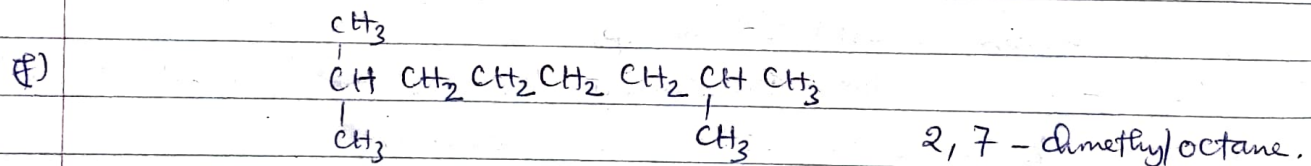 CH3
f) CH CH2 CH2 CH2 CH2 CH CH3
CH3 CH3 2, 7 - dimethyl octane.